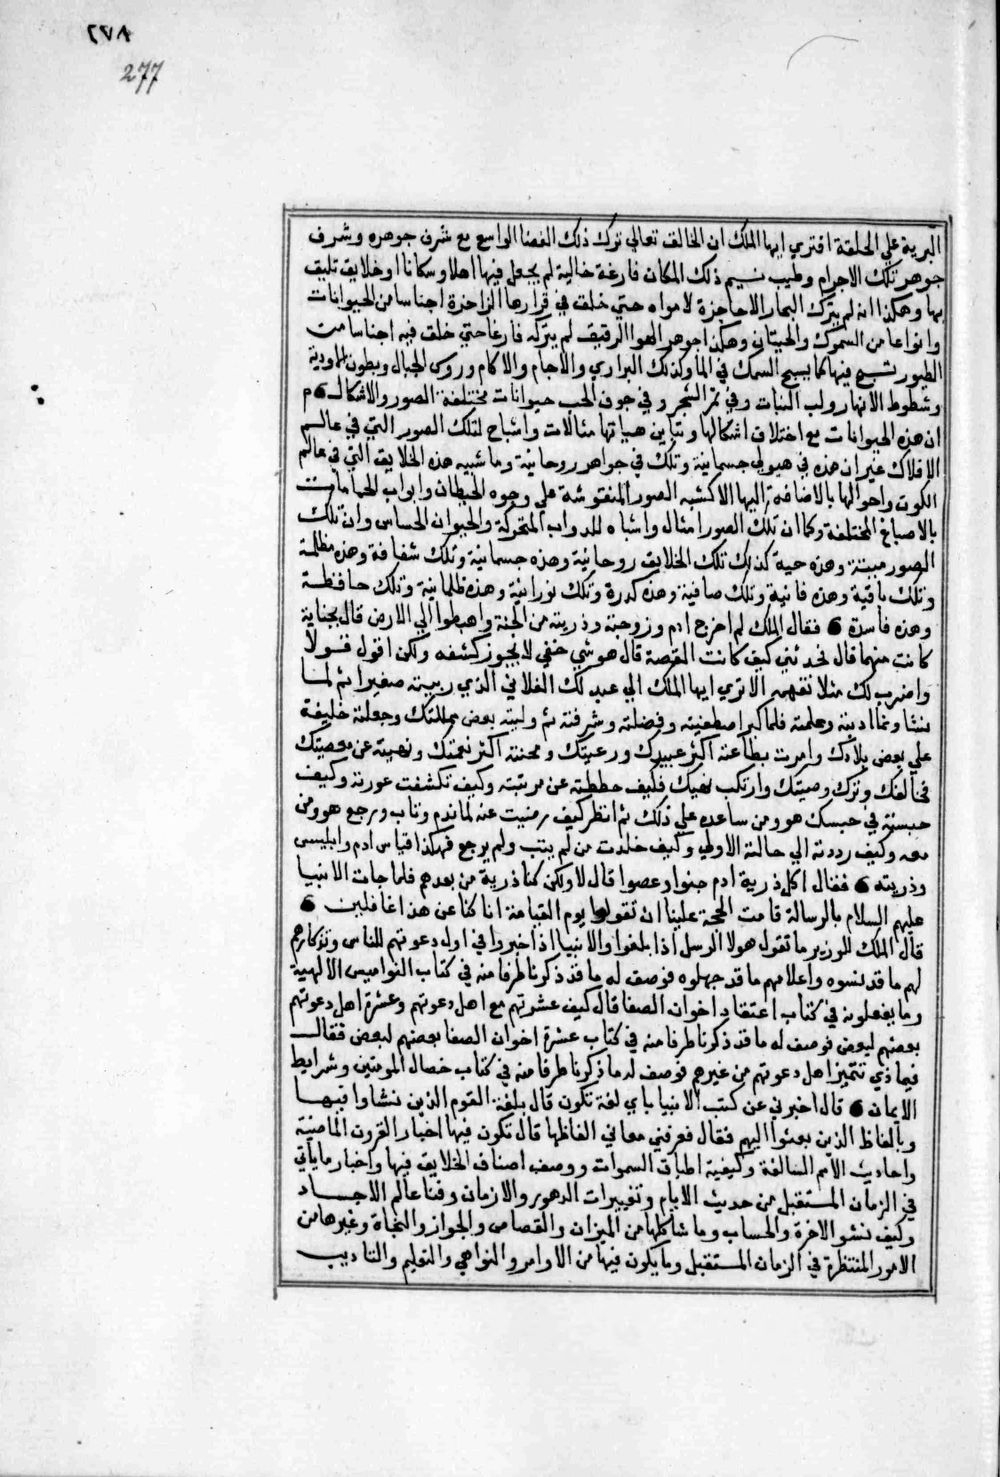 ٢٧٨
277
البرية علي الخلقة افتري ايها الملك ان الخالف تعالي ترك ذلك الفضا الواسع مع شرف جوهره وشرف
جوهر تلك الاجرام وطيب نسيم ذلك المكان فارغة خالية لم يجعل فيها اهلا وسكانا او خلايق تليق
بها وهكذا انه لم يترك البحار الاجاجزة لامواه حتي خلف في قرارها الزاخرة اجناسا من الحيوانات
وانواعا من السموك والحيتان وهكذا جوهر الهوا الرقيف لم يتركه فارغا حتي خلف فيه اجناسا من
الطيور تسبح فيها كما يسبح السمك في الما وكذلك البراري والاجام والاكام وروس الجبال وبطون الاودية
وشطوط الانهار ولب النبات وفي ثمر الشجر وفي جوف الحب حيوانات مختلفة الصور والاشكال ثم
ان هذه الحيوانات مع اختلاف اشكالها وتباين هياتها مثالات واشباح لتلك الصور التي في عالم
الافلاك غير ان هذه في هيولي جسمانية وتلك في جواهر روحانية وما شبيه هذه الخلايق التي في عالم
الكون واحوالها بالاضافة اليها الا كشبه الصور المنقوشة علي وجوه الحيطان وابواب الحمامات
بالاصباغ المختلفة وكما ان تلك الصور امثال واشباه للدواب المتحركة والحيوان الحساس وان تلك
الصور ميتة وهذه حية كذلك تلك الخلايق روحانية وهذه جسمانية وتلك شفافة وهذه مظلمة
وتلك باقية وهذه فانية وتلك صافية وهذه كدرة وتلك نورانية وهذه ظلمانية وتلك حافظة
وهذه فاسدة فقال الملك لم اخرج ادم وزوجته وذريته من الجنة واهبطوا الي الارض قال بجناية
كانت منهما قال فحدثني كيف كانت القصة قال هو شي خفي لا يجوز كشفه ولكن اقول قولا
واضرب لك مثلا تفهمه الا تري ايها الملك الي عبدك الفلاني الذي ربيته صغيرا ثم لما
نشا ونما ادبته وعلمته فلما كبر اصطفيته وفضلته وشرفته ثم وليته بعض مملكتك وجعلته خليفة
علي بعض بلادك وامرت بطاعته اكثر عبيدك ورعيتك ومحنته اكثر نعمتك ونهيته عن معصيتك
فخالفك وترك وصيتك وارتكب نهيك فكيف حططته عن مرتبته وكيف تكشفت عورته وكيف
حبسته في حبسك هو ومن ساعده علي ذلك ثم انظر كيف رضيت عنه لما ندم وتاب ورجع هو ومن
معه وكيف رددته الي حالته الاولي وكيف خلدت من لم يتب ولم يرجع فهكذا قياس ادم وابليس
وذريته فقال اكل ذرية ادم جنوا وعصوا قال لا ولكن كنا ذرية من بعدهم فلما جات الانبيا
عليهم السلام بالرسالة قامت الحجة علينا ان نقولوا يوم القيامة انا كنا عن هذا غافلين
قال الملك للوزير ما تقول هولا الرسل اذا بلغوا والانبيا اذ اخبروا في اول دعوتهم للناس وتذكارهم
لهم ما قد نسوه واعلامهم ما قد جهلوه فوصف له ما قد ذكرنا طرفا منه في كتاب النواميس الالهية
وما يفعلونه في كتاب اعتقاد اخوان الصفا قال كيف عشرتهم مع اهل دعوتهم وعشرة اهل دعوتهم
بعضهم لبعض فوصف له ما قد ذكرنا طرفا منه في كتاب عشرة اخوان الصفا بعضهم لبعض فقال
فبماذي تتميز اهل دعوتهم من غيرهم فوصف له ما ذكرنا طرفا منه في كتاب خصال المومنين وشرايط
الايمان قال اخبرني عن كتب الانبيا باي لغة تكون قال بلغة القوم الذين نشاوا فيها
وبالفاظ الذين بعثوا اليهم فقال فعرفني معاني الفاظها قال تكون فيها اخبار القرون الماضية
واحاديث الامم السالفة وكيفية اطباق السموات ووصف اصناف الخلايق فيها واخبار ما ياتي
في الزمان المستقبل من حديث الايام وتغييرات الدهور والازمان وفنا عالم الاجساد
وكيف نشو الاخرة والحساب وما شاكلها من الميزان والقصاص والجواز والنجاة وغيرها من
الامور المنتظرة في الزمان المستقبل وما يكون فيها من الاوامر والنواهي والتعليم والتاديب